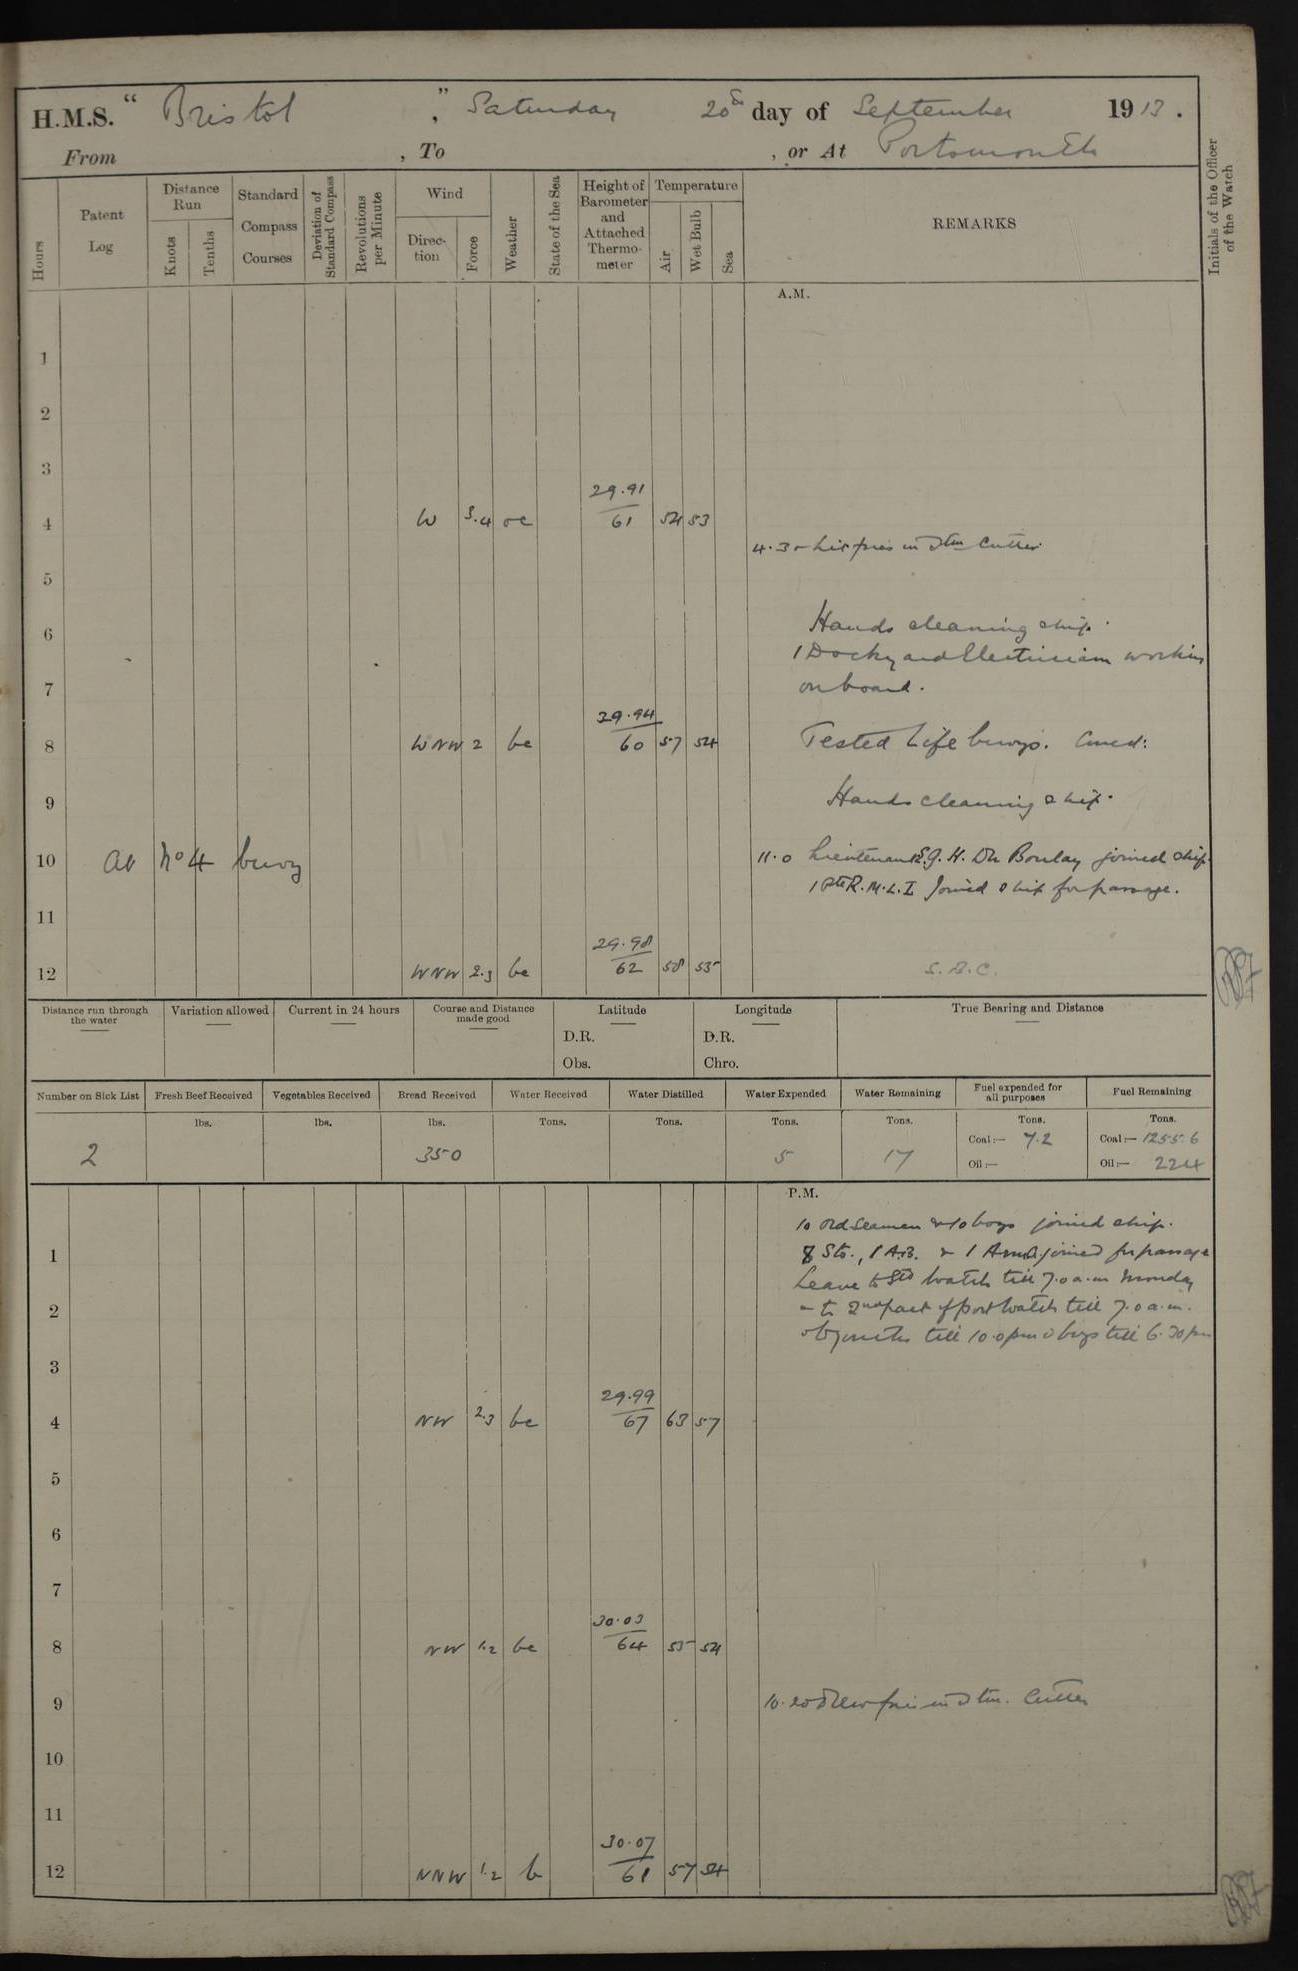 H.M.S. “ Bristol ”, Saturday 20th day of September 1913.
From , To , or At Portsmouth
Hours
Patent Log
Distance Run
Knots
Tenths
Standard Compass Courses
Deviation of Standard Compass
Revolutions per Minute
Wind
Direc-tion
Force
Weather
State of the Sea
Height of Barometer and Attached Thermo-meter
Temperature
Air
Wet Bulb
Sea
REMARKS
Initials of the Officer of the Watch
A.M.
1
2
3
29.91
4 W 3.4 oc 61 54 53
4.30 Lit fires in Stm Cutter.
5
6 Hands cleaning ship.
1 Dockyard Electrician working
7 on board.
29.94
8 WNW 2 bc 60 57 54 Tested Life buoys. Correct:
9 Hands cleaning ship.
10 At No 4 buoy 11.0 Lieutenant G. H. Du Boulay joined ship.
1 Pte R.M.L.I. Joined ship for passage.
11
29.98
12 WNW 2.3 bc 62 58 55
Distance run through the water
Variation allowed
Current in 24 hours
Course and Distance made good
Latitude
D.R.
Obs.
Longitude
D.R.
Chro.
True Bearing and Distance
Number on Sick List
Fresh Beef Received
Vegetables Received
Bread Received
Water Received
Water Distilled
Water Expended
Water Remaining
Fuel expended for all purposes
Fuel Remaining
lbs. lbs. lbs. Tons. Tons. Tons. Tons. Tons. Tons.
Coal:— 7.2 Coal:— 1255.6
2 350 5 17 Oil:— Oil:— 224
P.M.
10 Ord Seamen & 10 boys joined ship.
1 8 Sto., 1 A.B. & 1 joined for passage
Leave to Stbd Watch till 7.0 a.m Monday
2 & to 2nd part of Port Watch till 7.0 a.m.
till 10.0 pm & boys till 6.30 pm
3
29.99
4 NW 2.3 bc 67 63 57
5
6
7
30.03
8 NW 1.2 bc 64 55 54
9 10.20 Drew fires in Stm. Cutter
10
11
30.07
12 NNW 1.2 b 61 57 54